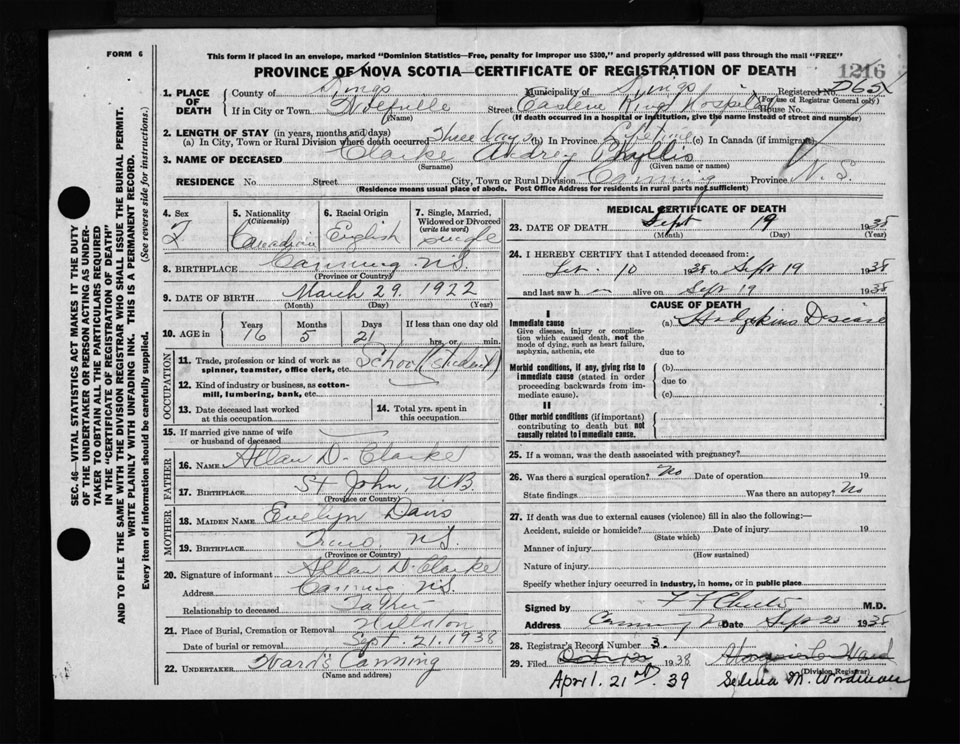 FORM 6
This form if placed in an envelope, marked "Dominion Statistics—Free, penalty for improper use $300," and properly addressed will pass through the mail "FREE"
1216
PROVINCE OF NOVA SCOTIA—CERTIFICATE OF REGISTRATION OF DEATH
1. PLACE OF DEATH
County of Kings Municipality of Kings Registered No.
(For use of Registrar General only)
If in City or Town Wolfville Street Eastern Kings Hospital House No.
(Name) (If death occurred in a hospital or institution, give the name instead of street and number)
2. LENGTH OF STAY (in years, months and days)
(a) In City, Town or Rural Division where death occurred Three days (b) In Province Lifetime (c) In Canada (if immigrant)
3. NAME OF DECEASED Clarke Audrey Phyllis
(Surname) (Given name or names)
RESIDENCE No Street City, Town or Rural Division Canning Province N.S.
(Residence means usual place of abode. Post Office Address for residents in rural parts not sufficient)
4. Sex F
5. Nationality (Citizenship) Canadian
6. Racial Origin English
7. Single, Married, Widowed or Divorced (write the word) single
8. BIRTHPLACE Canning N.S.
(Province or Country)
9. DATE OF BIRTH March 29, 1922
(Month) (Day) (Year)
10. AGE in Years 16 Months 5 Days 21 If less than one day old hrs. or min.
OCCUPATION
11. Trade, profession or kind of work as spinner, teamster, office clerk, etc. School (Student)
12. Kind of industry or business, as cotton-mill, lumbering, bank, etc.
13. Date deceased last worked at this occupation
14. Total yrs. spent in this occupation
15. If married give name of wife or husband of deceased
FATHER
16. NAME Allan D. Clarke
17. BIRTHPLACE St John, N.B.
(Province or Country)
MOTHER
18. MAIDEN NAME Evelyn Davis
19. BIRTHPLACE Truro, N.S.
(Province or Country)
20. Signature of informant Allan D. Clarke
Address Canning N.S.
Relationship to deceased Father
21. Place of Burial, Cremation or Removal Hillaton
Date of burial or removal Sept. 21. 1938
22. UNDERTAKER Ward's Canning
(Name and address)
MEDICAL CERTIFICATE OF DEATH
23. DATE OF DEATH Sept 19 1938
(Month) (Day) (Year)
24. I HEREBY CERTIFY that I attended deceased from:
10 1938 to Sept 19 1938
and last saw h er alive on Sept 19 1938
CAUSE OF DEATH
I
Immediate cause (a) Hodgkins Disease
Give disease, injury or complication which caused death, not the mode of dying, such as heart failure, asphyxia, asthenia, etc
due to
Morbid conditions, if any, giving rise to immediate cause (stated in order proceeding backwards from immediate cause).
(b)
due to
(c)
II
Other morbid conditions (if important) contributing to death but not causally related to immediate cause.
25. If a woman, was the death associated with pregnancy?
26. Was there a surgical operation? No Date of operation 19
State findings Was there an autopsy? No
27. If death was due to external causes (violence) fill in also the following:—
Accident, suicide or homicide? Date of injury 19
(State which)
Manner of injury
(How sustained)
Nature of injury
Specify whether injury occurred in industry, in home, or in public place
Signed by M.D.
Address Canning Date Sept 20 1938
28. Registrar's Record Number 3.
29. Filed 1938
(Division Registrar)
April. 21st. 39 Selina M. Wordman
SEC. 46—VITAL STATISTICS ACT MAKES IT THE DUTY OF THE UNDERTAKER OR PERSON ACTING AS UNDERTAKER TO OBTAIN ALL THE PARTICULARS REQUIRED IN THE "CERTIFICATE OF REGISTRATION OF DEATH"
AND TO FILE THE SAME WITH THE DIVISION REGISTRAR WHO SHALL ISSUE THE BURIAL PERMIT.
WRITE PLAINLY WITH UNFADING INK. THIS IS A PERMANENT RECORD.
Every item of information should be carefully supplied. (See reverse side for instructions.)